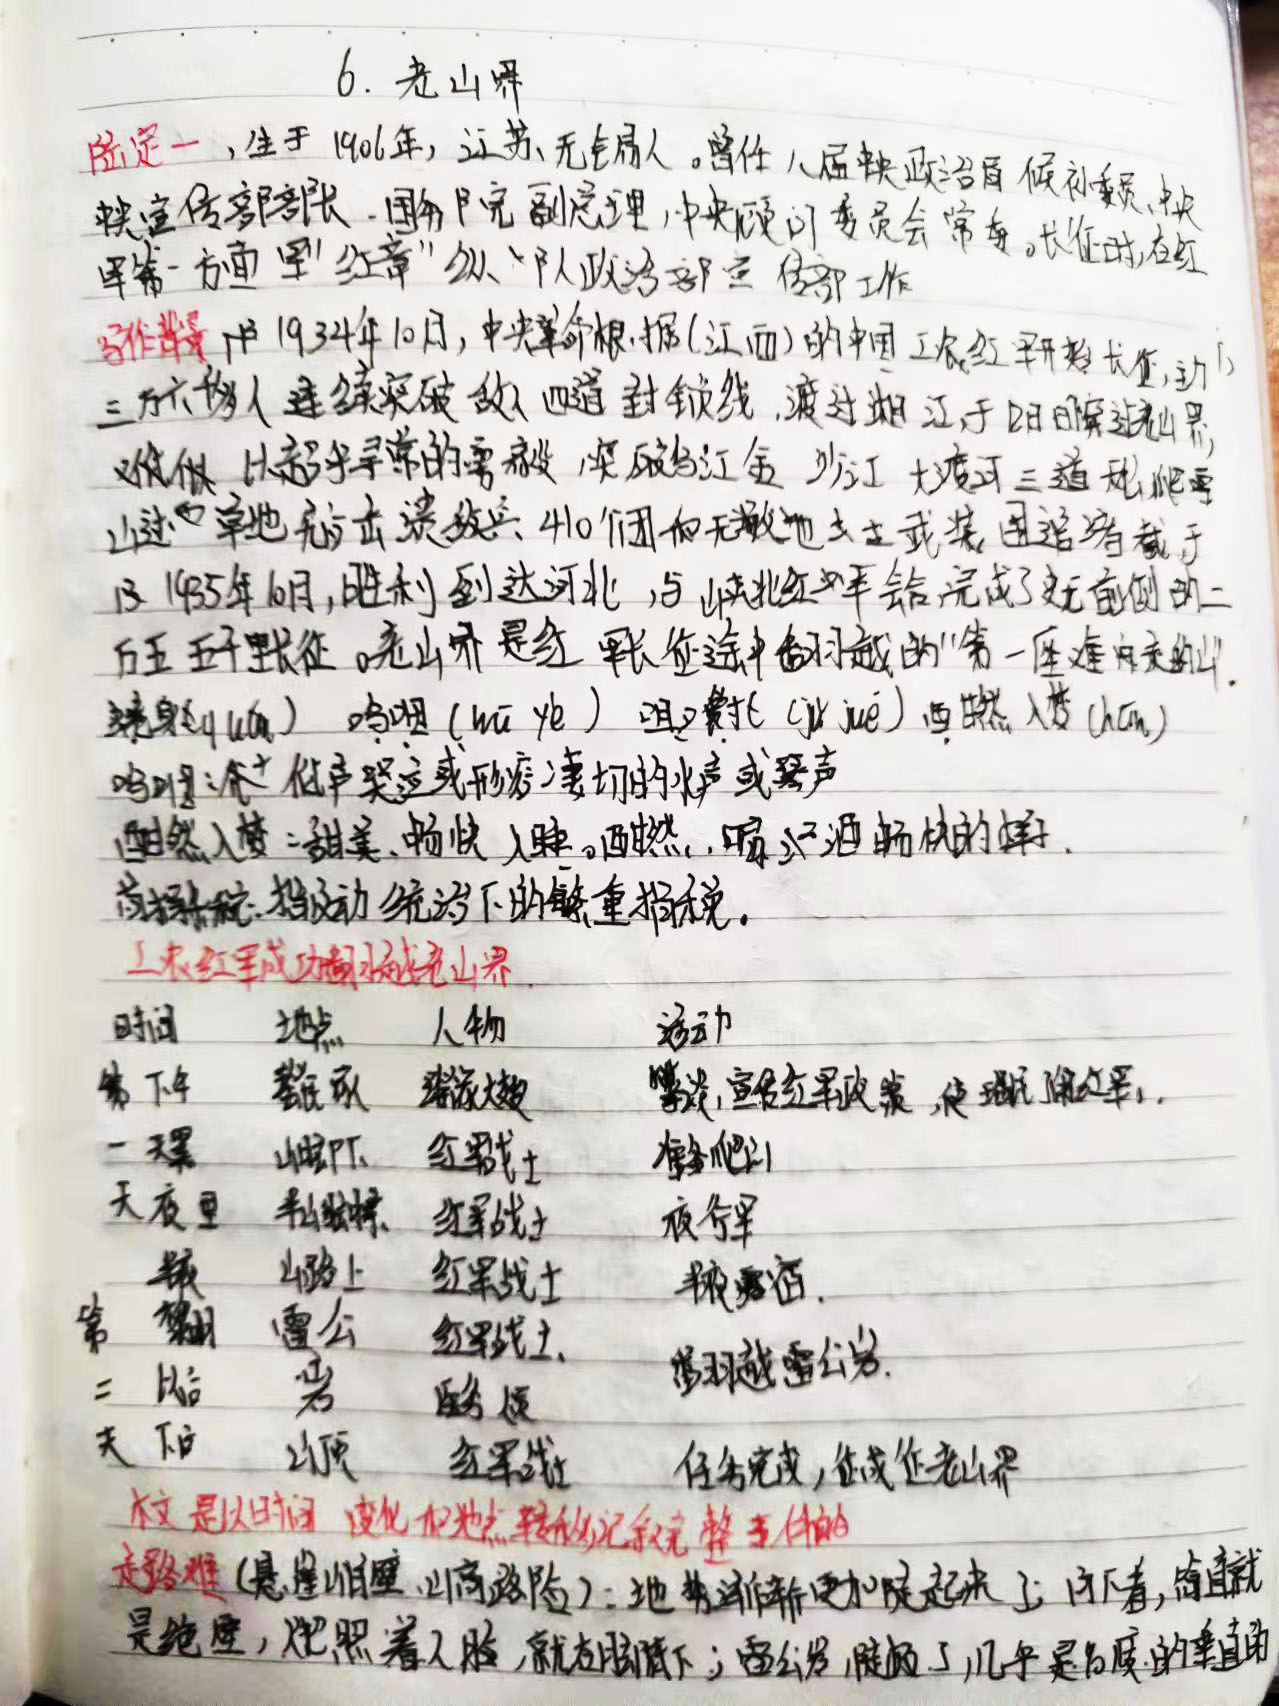 6. 老山界
陆定一，生于1906年，江苏无锡人。曾任八届中央政治局候补委员、中央
中央宣传部部长、国务院副总理，中央顾问委员会常委。长征时，在红
军第一方面军"红章"纵队政治部宣传部工作
写作背景 1934年10月，中央革命根据(江西)的中国工农红军开始长征，
三万六千多人连续突破敌人四道封锁线，渡过湘江，于 突过老山界，
以超乎寻常的勇毅，突破乌江金沙江大渡河三道 爬雪
山过草地 击溃敌兵410个团和无数地主武装围追堵截于
1935年10月，胜利到达河北，与陕北红军会合，完成了史无前例的二
万五五千里长征。老山界是红军长征途中翻越的"第一座难爬的山".
(quán) 呜咽(wū yè) 咀嚼(jǔ jué) 酣然入梦(hān)
呜咽: 低声哭泣或形容凄切的水声或琴声
酣然入梦:甜美、畅快入睡。酣然，喝酒畅快的样子.
苛捐杂税:指反动统治下的繁重捐税。
工农红军成功翻越老山界.
时间 地点 人物 活动
第 下午 瑶民家 瑶族大嫂 攀谈，宣传红军政策，使瑶民了解红军.
一 天黑 山脚下 红军战士 准备爬山
天 夜里 半山 红军战士 夜行军
半夜 山路上 红军战士 半夜露宿.
第 黎明 雷公 红军战士、 翻越雷公岩.
二 以后 岩 医务员
天 下午 山顶 红军战士 任务完成，征成征老山界
本文是以时间变化和地点转移记叙完整事件的
走路难(悬崖峭壁、山高路险):地势渐渐更加陡起来了;向下看，简直就
是绝壁，火把照着人脸，就在脚底下;雷公岩，陡极了，几乎是九十度的垂直的